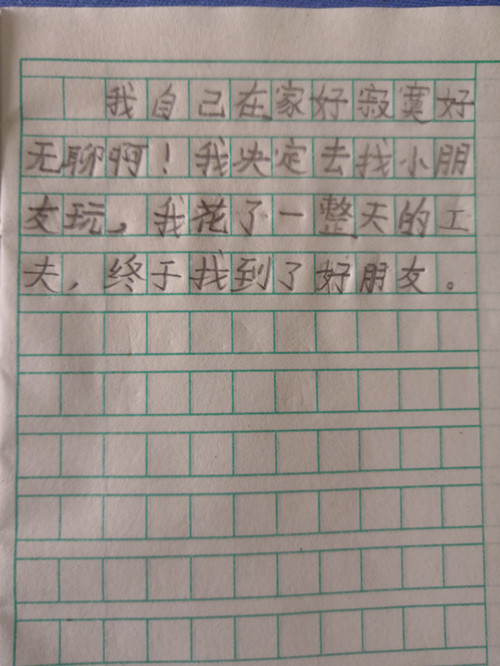 我自己在家好寂寞好
无聊啊！我决定去找小朋
友玩，我花了一整天的工
夫，终于找到了好朋友。